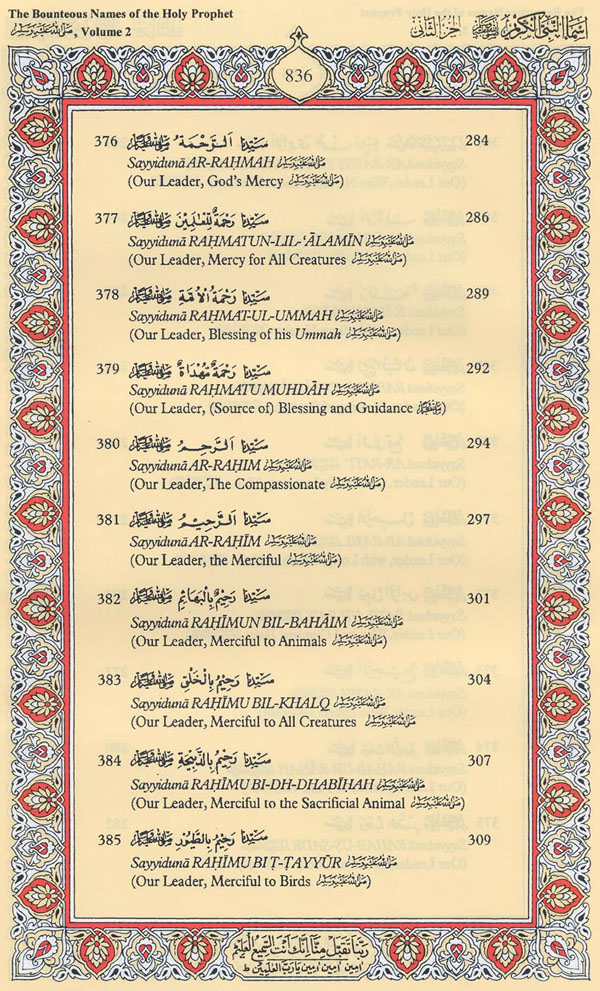 The Bounteous Names of the Holy Prophet
ﷺ, Volume 2
اسماء النبی الکریم ﷺ الجزء الثانی
836
376 سَيِّدُنَا اَلرَّحْمَةُ ﷺ 284
Sayyidunā AR-RAḤMAH ﷺ
(Our Leader, God's Mercy ﷺ)
377 سَيِّدُنَا رَحْمَةٌ لِلْعٰلَمِيْنَ ﷺ 286
Sayyidunā RAḤMATUN-LIL-‘ĀLAMĪN ﷺ
(Our Leader, Mercy for All Creatures ﷺ)
378 سَيِّدُنَا رَحْمَةُ الْاُمَّةِ ﷺ 289
Sayyidunā RAḤMAT-UL-UMMAH ﷺ
(Our Leader, Blessing of his Ummah ﷺ)
379 سَيِّدُنَا رَحْمَةٌ مُهْدَاةٌ ﷺ 292
Sayyidunā RAḤMATU MUHDĀH ﷺ
(Our Leader, (Source of) Blessing and Guidance ﷺ)
380 سَيِّدُنَا اَلرَّحِمُ ﷺ 294
Sayyidunā AR-RAḤIM ﷺ
(Our Leader, The Compassionate ﷺ)
381 سَيِّدُنَا اَلرَّحِيْمُ ﷺ 297
Sayyidunā AR-RAḤĪM ﷺ
(Our Leader, the Merciful ﷺ)
382 سَيِّدُنَا رَحِيْمٌ بِالْبَهَائِمِ ﷺ 301
Sayyidunā RAḤĪMUN BIL-BAHĀIM ﷺ
(Our Leader, Merciful to Animals ﷺ)
383 سَيِّدُنَا رَحِيْمٌ بِالْخَلْقِ ﷺ 304
Sayyidunā RAḤĪMU BIL-KHALQ ﷺ
(Our Leader, Merciful to All Creatures ﷺ)
384 سَيِّدُنَا رَحِيْمٌ بِالذَّبِيْحَةِ ﷺ 307
Sayyidunā RAḤĪMU BI-DH-DHABĪḤAH ﷺ
(Our Leader, Merciful to the Sacrificial Animal ﷺ)
385 سَيِّدُنَا رَحِيْمٌ بِالطُّيُوْرِ ﷺ 309
Sayyidunā RAḤĪMU BI Ṭ-ṬAYYŪR ﷺ
(Our Leader, Merciful to Birds ﷺ)
رَبَّنَا تَقَبَّلْ مِنَّا اِنَّكَ اَنْتَ السَّمِيْعُ الْعَلِيْمُ
اٰمِيْن اٰمِيْن اٰمِيْن يَا رَبَّ الْعٰلَمِيْنَ ط